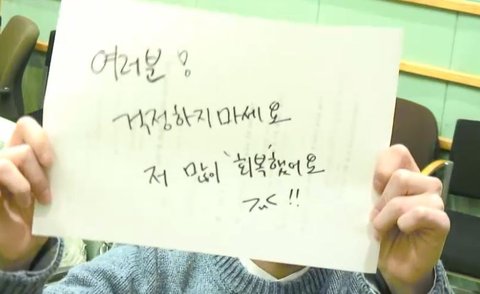 여러분!
걱정하지마세요
저 많이 '회복'했어요
굿!!